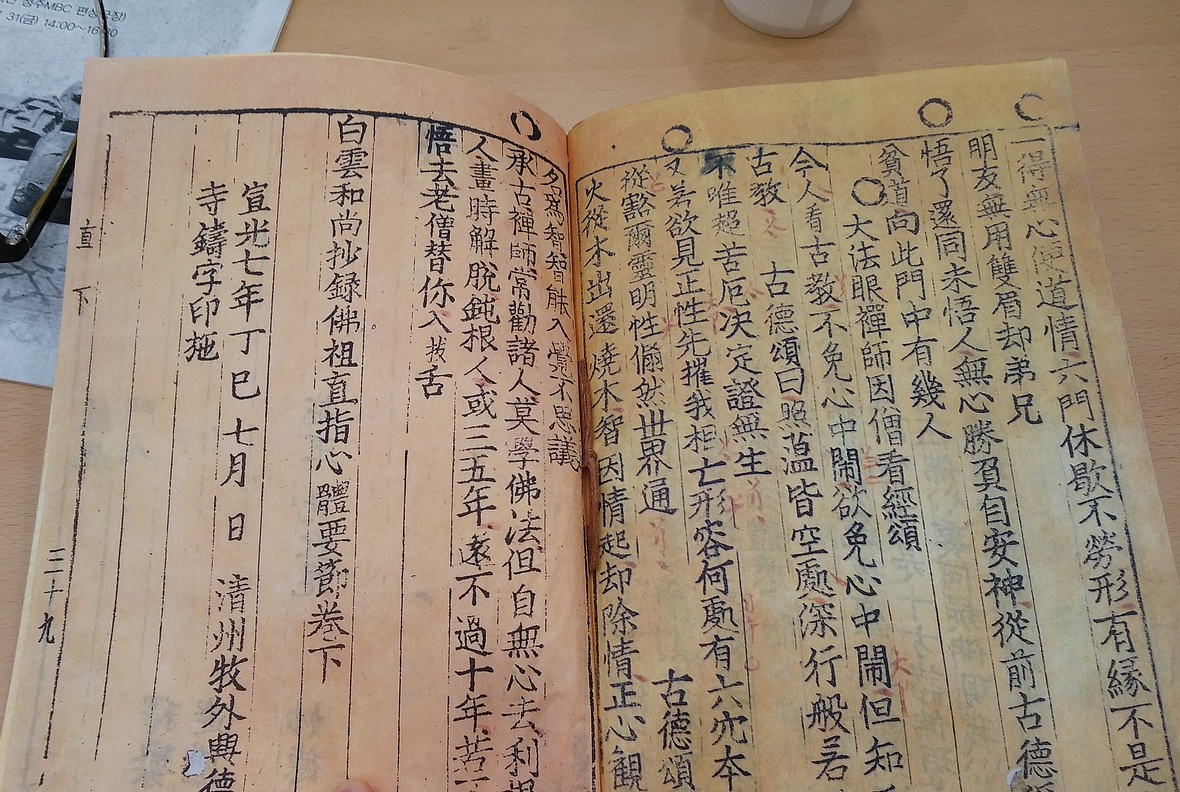 一得無心便道情六門休歇不勞形有緣不是
明友無用雙眉却弟兄
悟了還同未悟人無心勝負自安神從前古德
貧道向此門中有幾人
○大法眼禪師因僧看經頌
今人看古教不免心中鬧欲免心中鬧但知
古教 古德頌曰照薀皆空處深行般若
不唯超苦厄決定證無生
又善欲見正性先摧我相亡形容何處有六宂本
從豁爾靈明性翛然世界通 古德頌
火從木出還燒木智因情起却除情正心觀
名爲智智能入覺不思議
承古禪師常勸諸人莫學佛法但自無心去利根
人畫時解脫鈍根人或三五年遠不過十年若
悟去老僧替你入拔舌
白雲和尚抄録佛祖直指心體要節卷下
宣光七年丁巳七月 日 清州牧外興德
寺鑄字印施
直 下 三十九
청주MBC
31(금) 14:00~16:30